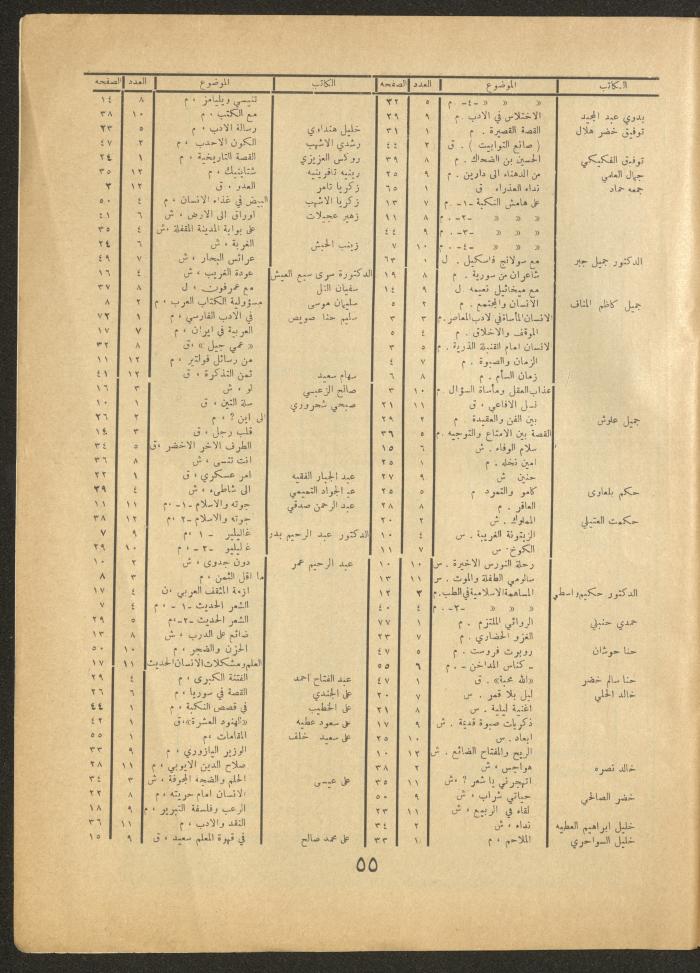 الكاتب الموضوع العدد الصفحه
« « « -٤- م ٥ ٣٢
بدوي عبد المجيد الاختلاس في الادب . م ٩ ٢٩
توفيق خضر هلال القصة القصيرة . م ١ ٣١
( صانع التوابيت ) . ق ٢ ٤٤
توفيق الفكيكي الحسين بن الضحاك . م ٨ ٣٩
جمال العلمي من الدهناء الى دارين . م ٩ ٢٥
جمعه حماد نداء العذراء ق ١ ٦٥
على هامش النكبة -١- م ٧ ١٣
« « « -٢- م ٨ ١١
« « « -٣- م ٩ ٤٤
« « « -٤- م ١٠ ٧
الدكتور جميل جبر مع سولانج فاسكيل . ل ١ ٦٣
شاعران من سورية . م ٨ ١٩
مع ميخائيل نعيمه ل ٩ ١٤
جميل كاظم المناف الانسان والمجتمع . م ٢ ٥
الانسان المأساة في لادب المعاصر.م ٣ ٣
الموقف والاخلاق . م ٤ ٥
لانسان امام القنبلة الذرية . م ٥ ٣
الزمان والصبوة . م ٧ ٤
زمان السأم . م ٨ ٦
عذاب العقل ومأساة السؤال . م ١٠ ٣
نسل الافاعي . ق ١١ ٢١
جميل علوش بين الفن والعقيدة . م ٢ ٢٩
القصة بين الامتاع والتوجيه . م ٥ ٣٦
سلام الوفاء . ش ٦ ١٥
امين نخله . م ١ ٢٥
حنين ش ٩ ٢٧
حكم بلعاوي كامو والتمرد م ٥ ٢٥
العاقر . م ٨ ٢٨
حكمت العتيلي المملوك . ش ٢ ٢٠
الزيتونة الغريبة . س ٤ ١٠
الكوخ . س ٧ ١١
رحلة النورس الاخيرة . س ١٠ ١٠
سالومي الطفلة والموت . س ١١ ١٣
الدكتور حكيم واسطي المساهمة الاسلامية في الطب . م ٣ ١٢
« « « -٢- . م ٤ ٤٠
حمدي حنبلي الروائي الملتزم . م ١ ٧٧
الغزو الحضاري . م ٧ ٢٣
حنا حوشان روبرت فروست . م ٥ ٤٧
- كناس المداخن - . م ٦ ٥٥
حنا سالم خضر «الله محبة» . ق ١ ٤٧
خالد الحلي ليل بلا قمر . س ٧ ٢٠
اغنية ليلية . س ٨ ٢١
ذكريات صبوة قديمة . ش ٩ ١٧
ابعاد . س ١٠ ٢٥
الريح والمفتاح الضائع . ش ١٢ ١٠
خالد نصره هواجس ، ش ٢ ٣٨
اتهجرني يا شعر ؟ ،ش ١١ ٣٥
خضر الصالحي حياتي شراب ، ش ٩ ٥٠
لقاء في الربيع ، ش ١١ ٢٣
خليل ابراهيم العطيه نداء ، ش ٢ ٣٤
خليل السواحري الملاحم ، م ١ ٣٣
الكاتب الموضوع العدد الصفحه
تنيسي ويليامز ، م ٨ ١٤
مع الكتب . م ١٠ ٣٨
خليل هنداوي رسالة الادب ، م ٥ ٢٣
رشدي الاشهب الكون الاحدب ، م ٢ ٤٧
روكس العزيزي القصة التاريخية ، م ١ ٢٤
رينيه تافرينيه شتاينبك ، م ١٢ ٣٥
زكريا تامر العدو ، ق ١٢ ٣
زكريا الاشهب البيض في غذاء الانسان ، م ٤ ٥٠
زهير عجيلات اوراق الى الارض ، ش ٦ ٤١
على بوابة المدينة المقفلة ،ش ٤ ٣٥
زينب الحبش الغربة ، ش ٦ ٢٤
عرائس البحار ، ش ٧ ٤٩
الدكتورة سرى سبع العيش عودة الغريب ، ش ٤ ١٦
سفيان التل مع عمرفون ، ل ٨ ٣٧
سليمان موسى مسؤولية الكتاب العرب ، م ٢ ٨
سليم حنا صويص في الادب الفارسي ، م ١ ٧٢
العربية في ايران ، م ٧ ١٧
« عمي جيل » ،ق ٨ ٣٢
من رسائل فولتير ، م ١٢ ١١
سهام سعيد ثمن التذكرة ، ق ١٢ ٤١
صالح الزعبسي لو ، ش ٣ ١٦
صبحي شحروري سلة التين ، ق ١ ١٠
الى اين ؟ ، م ٢ ٢٦
قلب رجل ، ق ٣ ١٤
الطرف الاخر الاخضر ،ق ٥ ٣٤
انت تنسى ، ش ٨ ٣٦
عبد الجبار الفقيه امر عسكري ، ق ١ ٢٢
عبد الجواد التميمي الى شاطىء ، ش ٤ ٣٩
عبد الرحمن صدقي جوته والاسلام -١- ،م ١١ ١١
جوته والاسلام -٢- ،م ١٢ ٣٨
الدكتور عبد الرحيم بدر غاليلير - ١ ،م ٩ ٧
غاليليو -٢- ، م ١٠ ٢٩
عبد الرحيم عمر دون جدوى ، ش ٢ ١٠
ما اقل الثمن ، م ٣ ٨
ازمة المثقف العربي ،ن ٤ ١٧
الشعر الحديث -١- ، م ٤ ٧
الشعر الحديث -٢-،م ٥ ٢٩
ضائع على الدرب ، ش ٨ ١٣
الحزن والضجر ، م ١٠ ٥٠
العلم ومشكلات الانسان الحديث ١١ ١٧
عبد الفتاح احمد الفتنة الكبرى ، م ٤ ٢٩
على الجندي القصة في سوريا ، م ٦ ٢٦
على الخطيب في قصص النكبة ، م ١ ٤٤
على سعود عطيه «الهنود العشرة»،ق ١ ٤٢
على سعيد خلف المقامات ،م ١ ٥٥
الوزير اليازوري ، م ٩ ٣٣
صلاح الدين الايوبي ، م ١١ ٢٨
على عيسى الحلم والضجه المجوفة ، ش ٣ ٣٤
الانسان امام حريته ، م ٨ ٢٢
الرعب وفلسفة التبرير ، م ٩ ١٨
النقد والادب ، م ١١ ٣٦
على محمد صالح في قهوة المعلم سعيد ، ق ٩ ١٥
٥٥